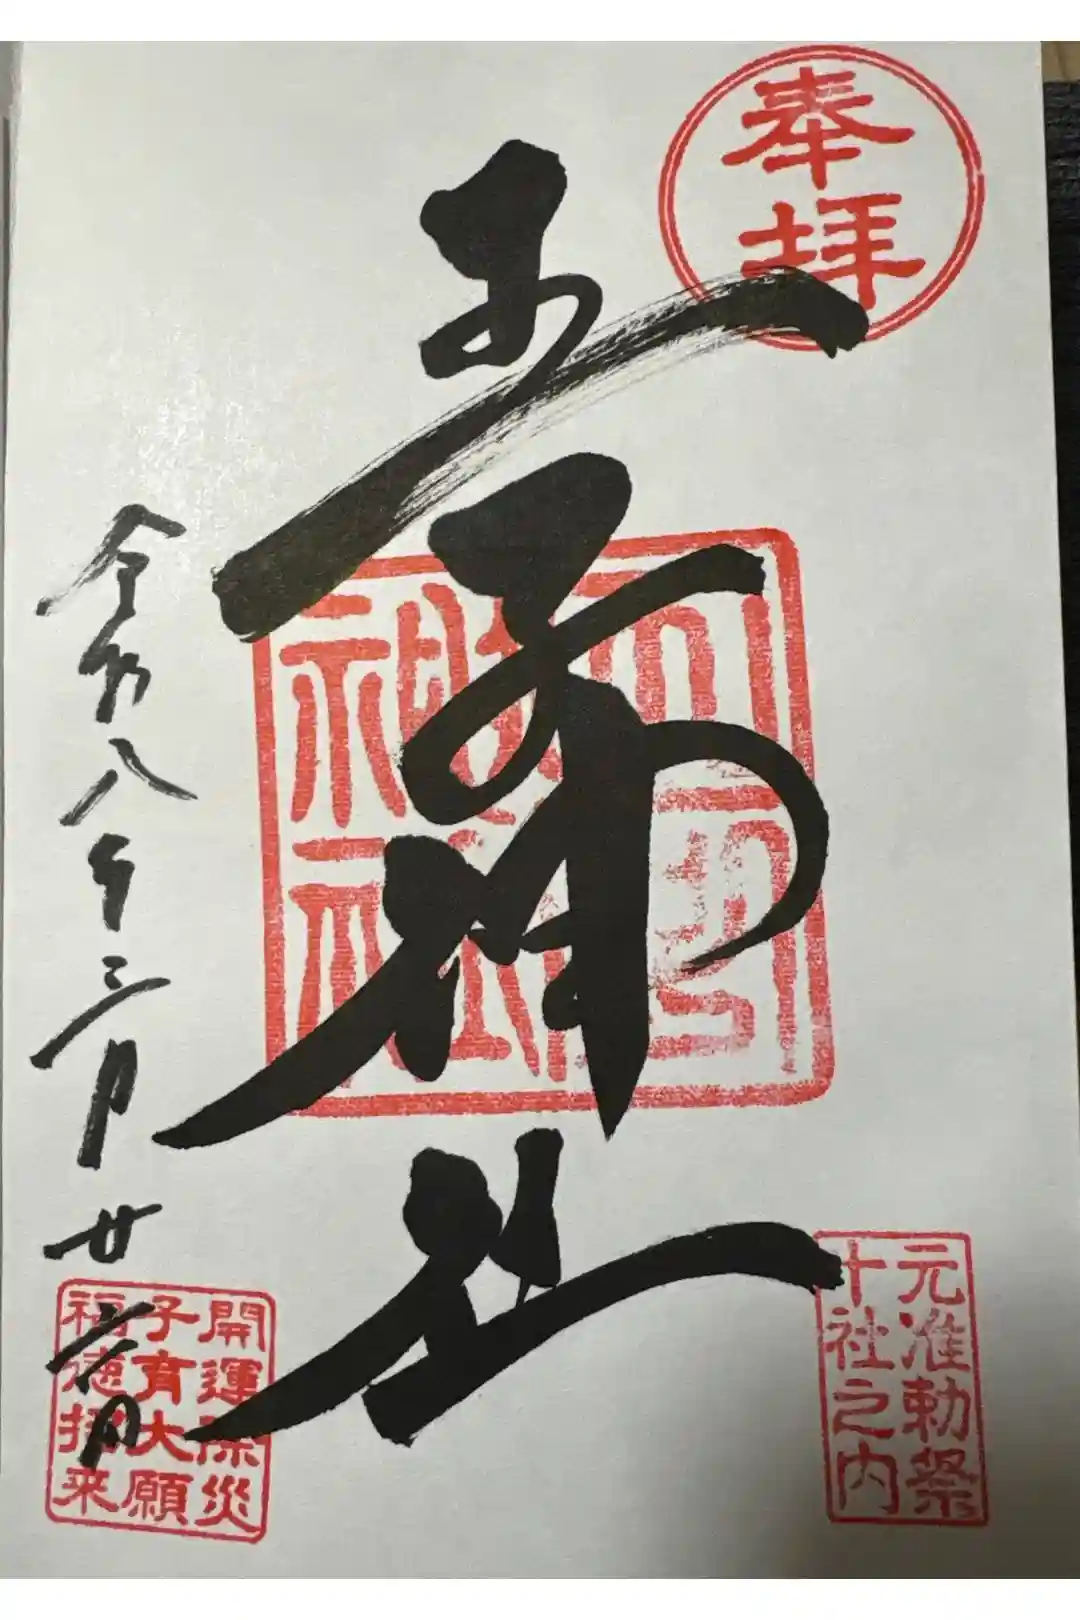 奉拝
王子神社
元准勅祭
十社之内
令和八年三月廿
開運除災
子育大願
福徳招来